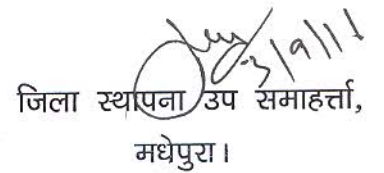 3/9/11
जिला स्थापना उप समाहर्त्ता,
मधेपुरा।